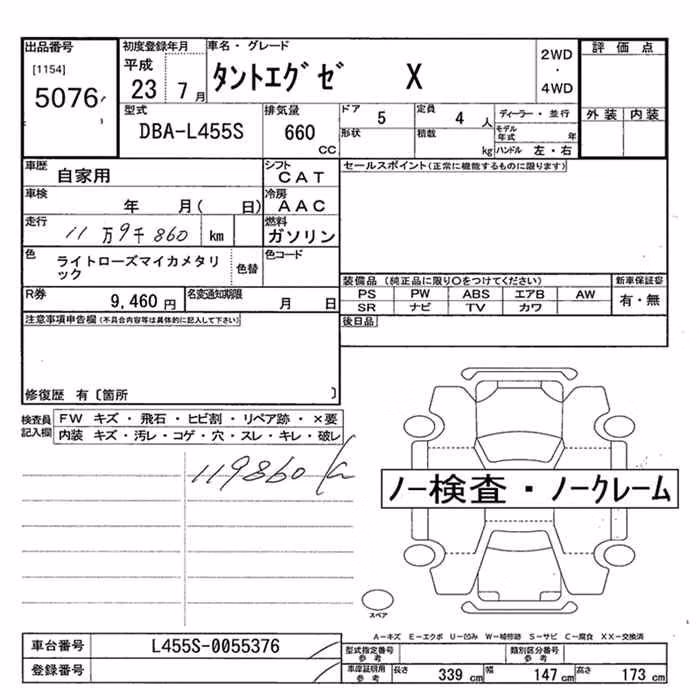 出品番号 初度登録年月 車名・グレード 2WD 評価点
[1154] 平成 ・
5076 23 7月 タントエグゼ X 4WD
型式 排気量 ドア 5 定員 4人 ディーラー・並行 外装 内装
DBA-L455S 660 CC 形状 積載 kg モデル年式 年
ハンドル 左・右
車歴 自家用 シフト CAT セールスポイント(正常に機能するものに限ります)
車検 年 月( 日) 冷房 AAC
走行 11万9千860 km 燃料 ガソリン
色 ライトローズマイカメタリック 色替 色コード
装備品(純正品に限り○をつけてください) 新車保証書
R券 9,460円 名変通知期限 月 日 PS PW ABS エアB AW 有・無
SR ナビ TV カワ
注意事項申告欄(不具合内容等は具体的に記入して下さい) 後日品
修復歴 有〔箇所 〕
検査員記入欄 FW キズ・飛石・ヒビ割・リペア跡・×要
内装 キズ・汚レ・コゲ・穴・スレ・キレ・破レ
119860
ノー検査・ノークレーム
スペア
A-キズ E-エクボ U-凹み W-補修跡 S-サビ C-腐食 XX-交換済
車台番号 L455S-0055376 型式指定番号 参考 類別区分番号 参考
登録番号 車庫証明用 参考 長さ 339 cm 幅 147 cm 高さ 173 cm